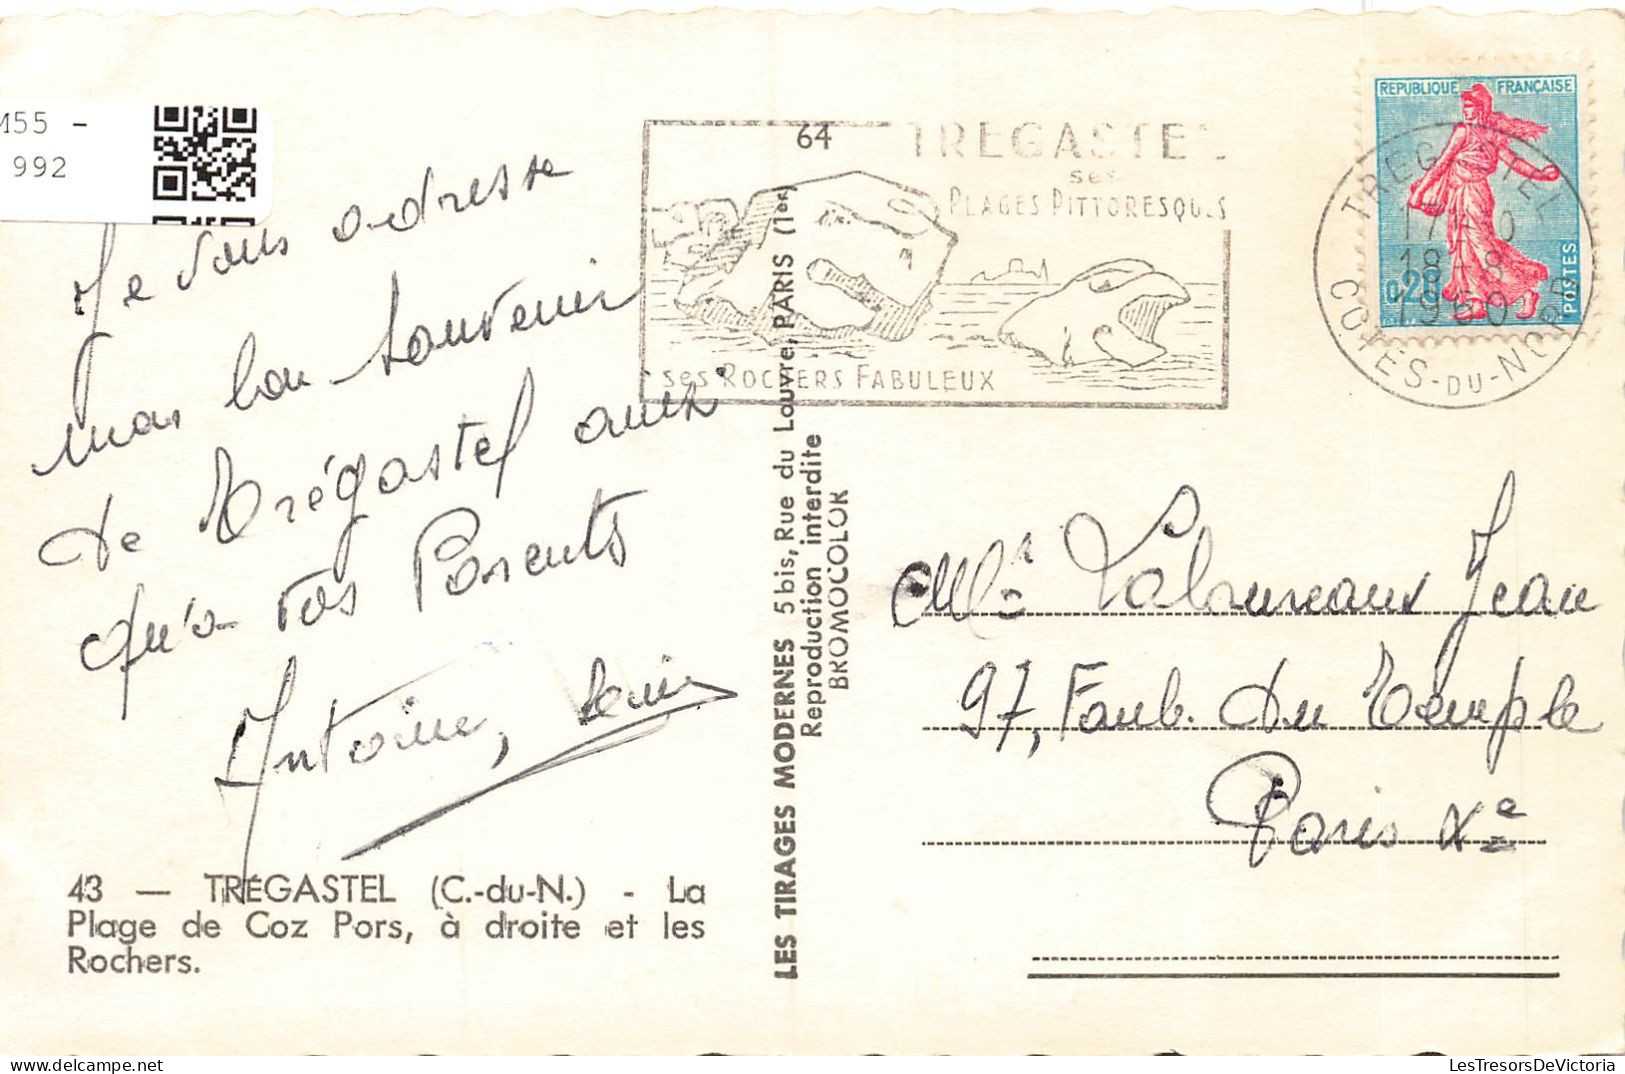 M55 -
992
Je vous adresse
mon bon souvenir
de Trégastel ainsi
qu'à vos Parents
Antoine,
43 — TRÉGASTEL (C.-du-N.) - La
Plage de Coz Pors, à droite et les
Rochers.
LES TIRAGES MODERNES 5 bis, Rue du Louvre, PARIS (1er)
Reproduction interdite
BROMOCOLOR
64
TREGASTEL
ses
PLAGES PITTORESQUES
ses ROCHERS FABULEUX
REPUBLIQUE FRANÇAISE
0,20
POSTES
TREGASTEL
18-8
1960
COTES-DU-NORD
Labrureaux Jean
97, Faub. du Temple
Paris Xe
LesTresorsDeVictoria